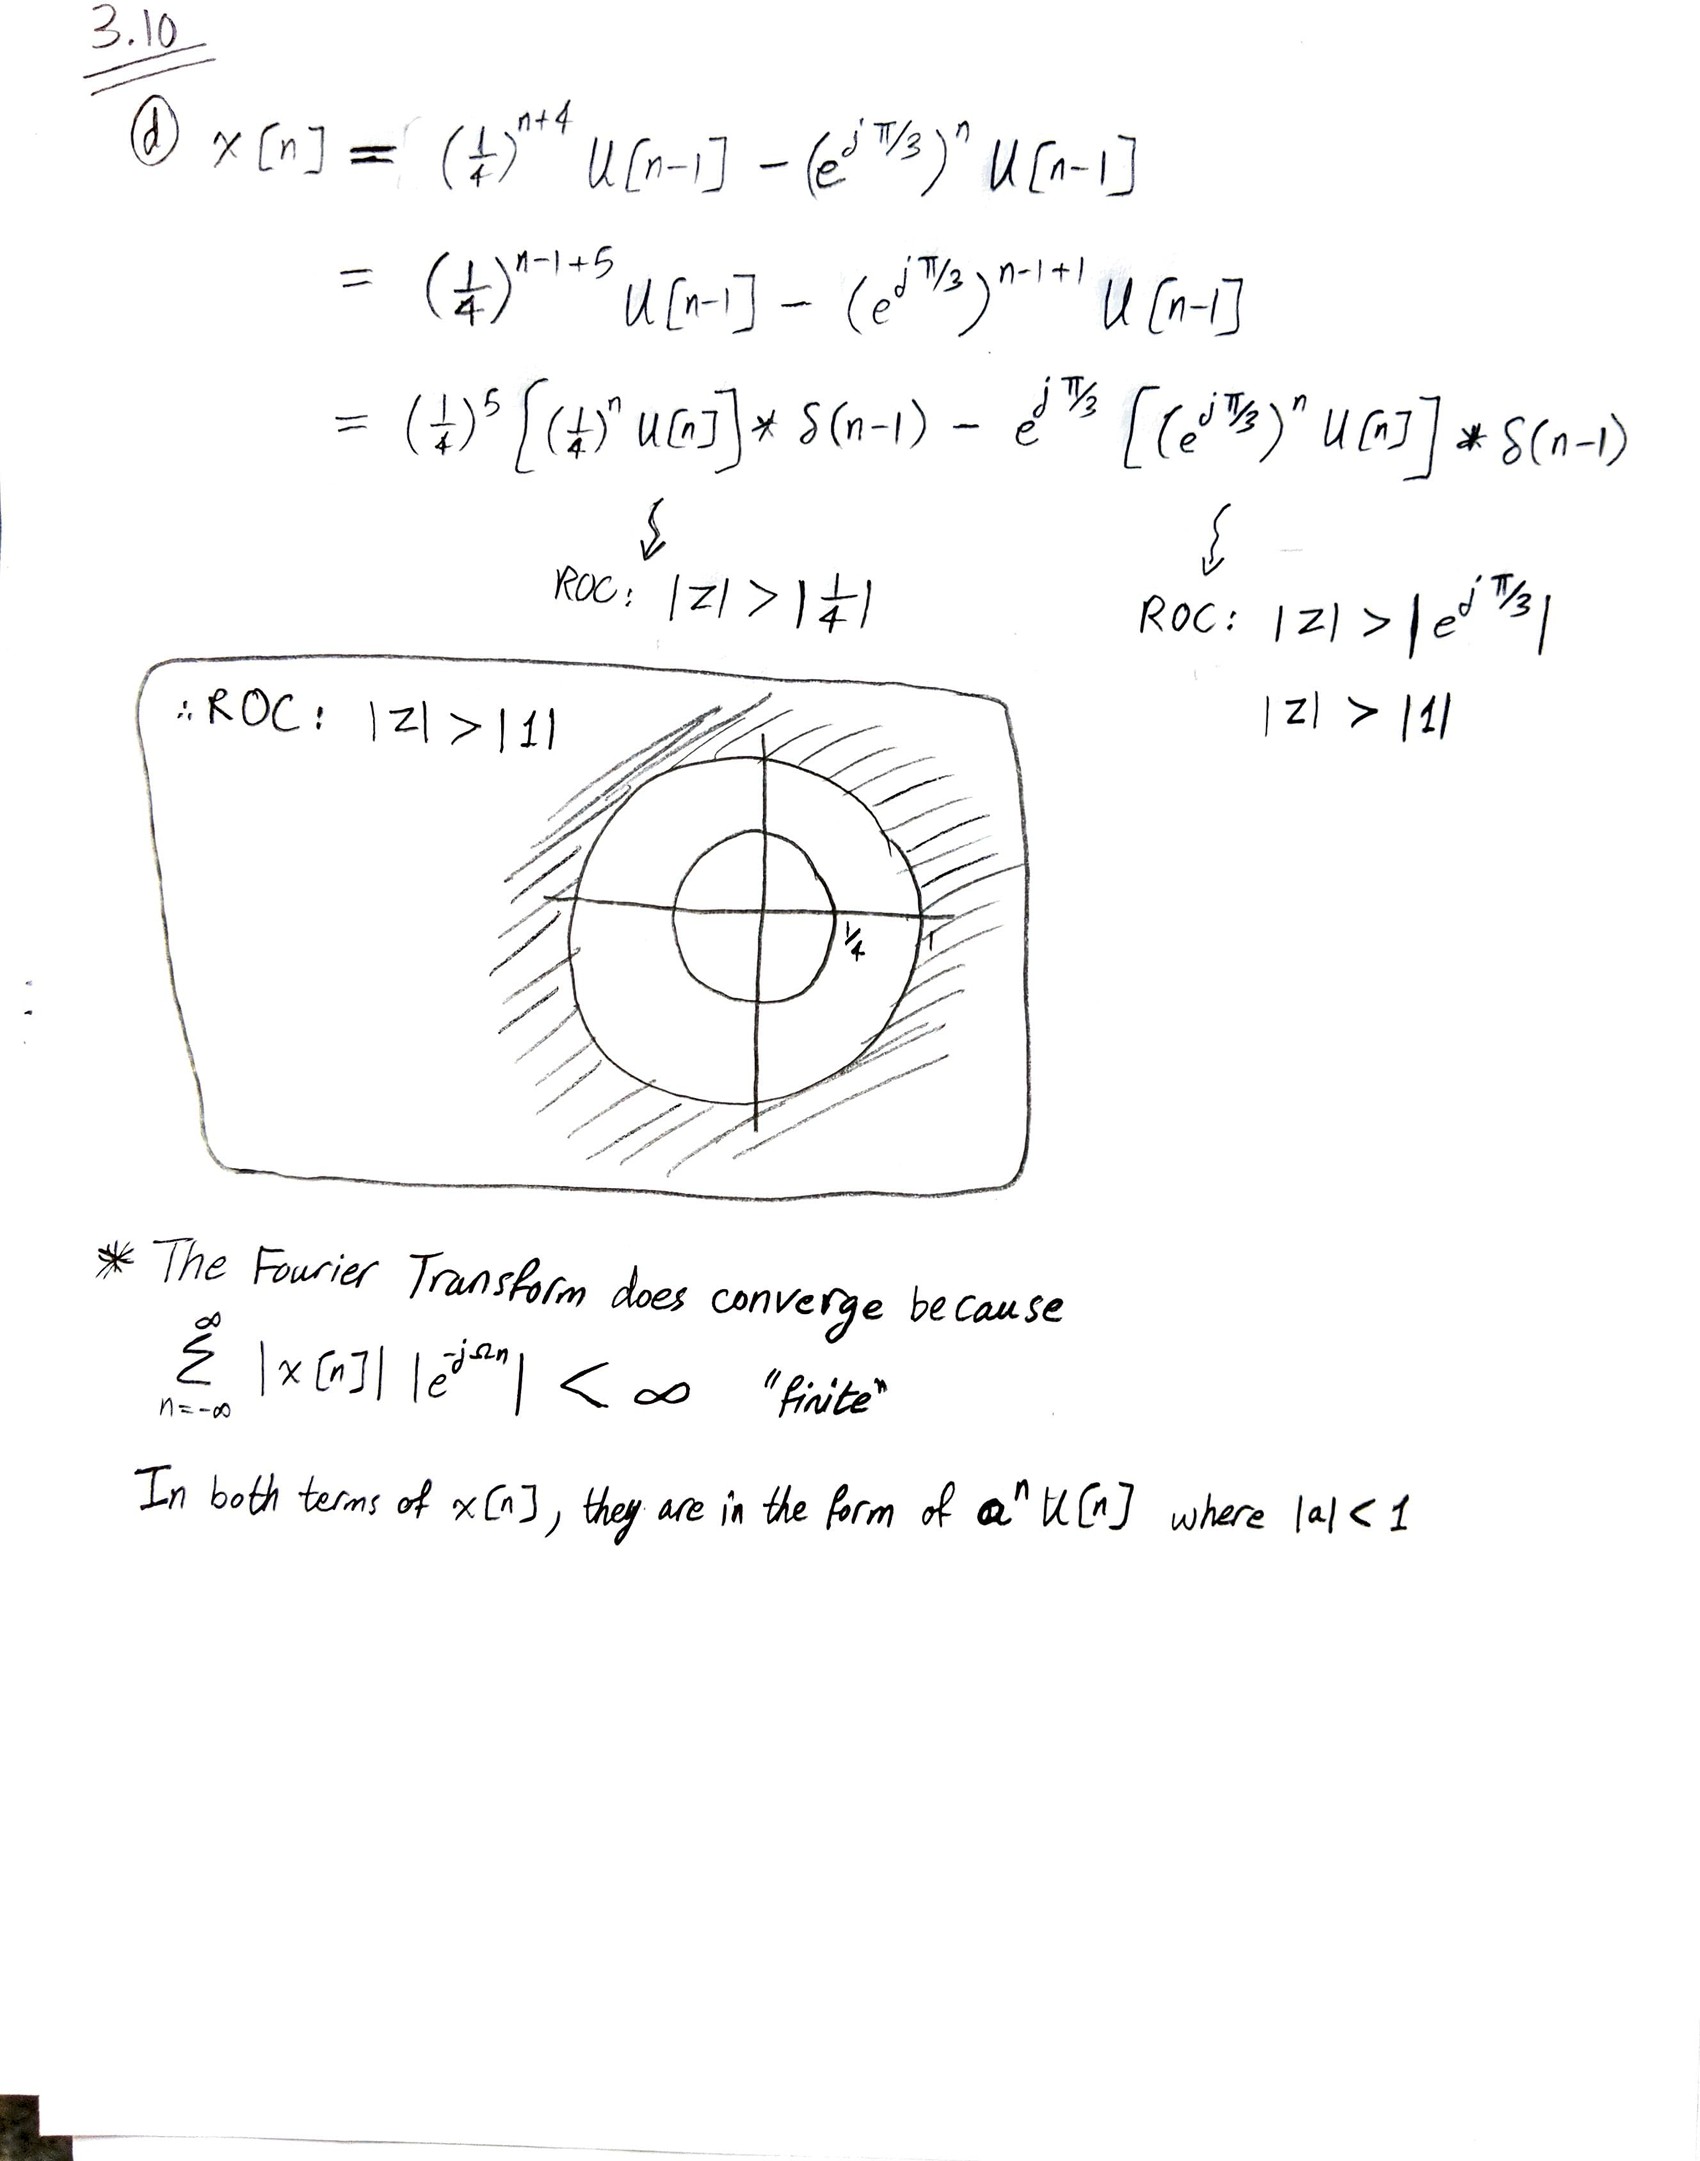 3.10
(d) x[n] = (1/4)^{n+4} U[n-1] - (e^{jπ/3})^n U[n-1]
= (1/4)^{n-1+5} U[n-1] - (e^{jπ/3})^{n-1+1} U[n-1]
= (1/4)^5 [(1/4)^n U[n]] * δ(n-1) - e^{jπ/3} [(e^{jπ/3})^n U[n]] * δ(n-1)
ROC: |z| > |1/4|
ROC: |z| > |e^{jπ/3}|
|z| > |1|
∴ ROC: |z| > |1|
1/4
1
* The Fourier Transform does converge because
∑_{n=-∞}^{∞} |x[n]| |e^{-jΩn}| < ∞ "finite"
In both terms of x[n], they are in the form of a^n U[n] where |a| < 1